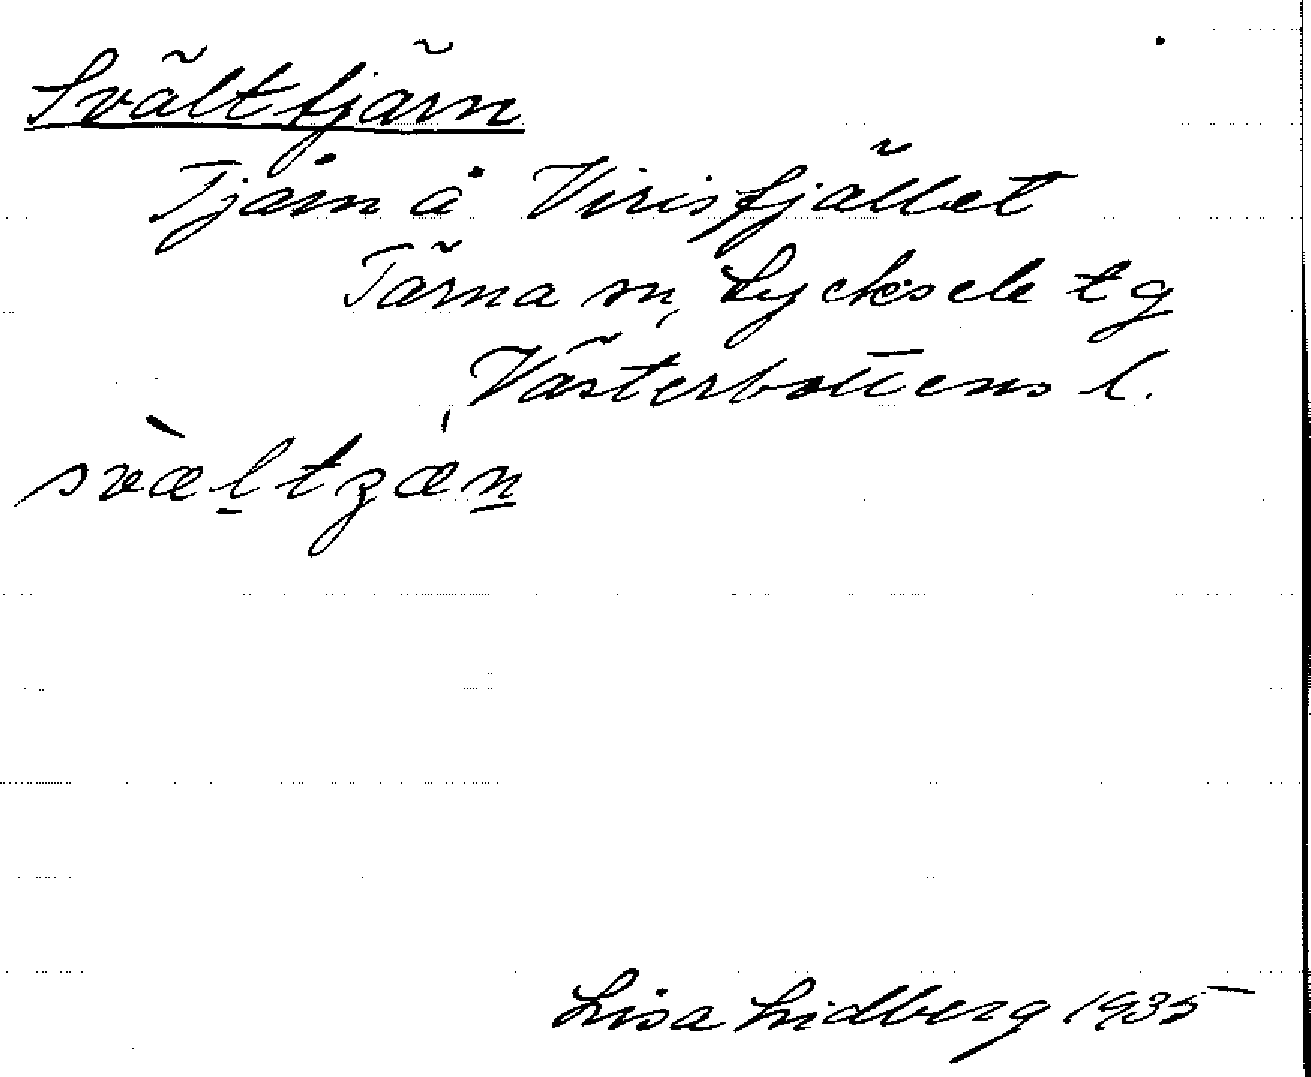 Svälttjärn
Tjärn å Virisfjället
Tärna sn, Lycksele tg
Västerbottens l.
svæ̀ltʒæ̍n
Lisa Lidberg 1935